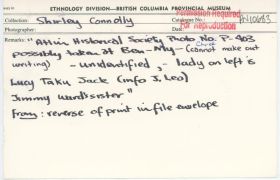 ETHNOLOGY DIVISION—BRITISH COLUMBIA PROVINCIAL MUSEUM
Collection: Shirley Connolly
Catalogue No.:
Permission Required
For Reproduction
Photographer: Date:
Remarks: "Atlin Historical Society Photo No. P-403
possibly taken at Ben-My-Chree (cannot make out
writing) - unidentified, - lady on left is
Lucy Taku Jack (info J. Leo)
Jimmy Ward's sister"
From: reverse of print in file envelope